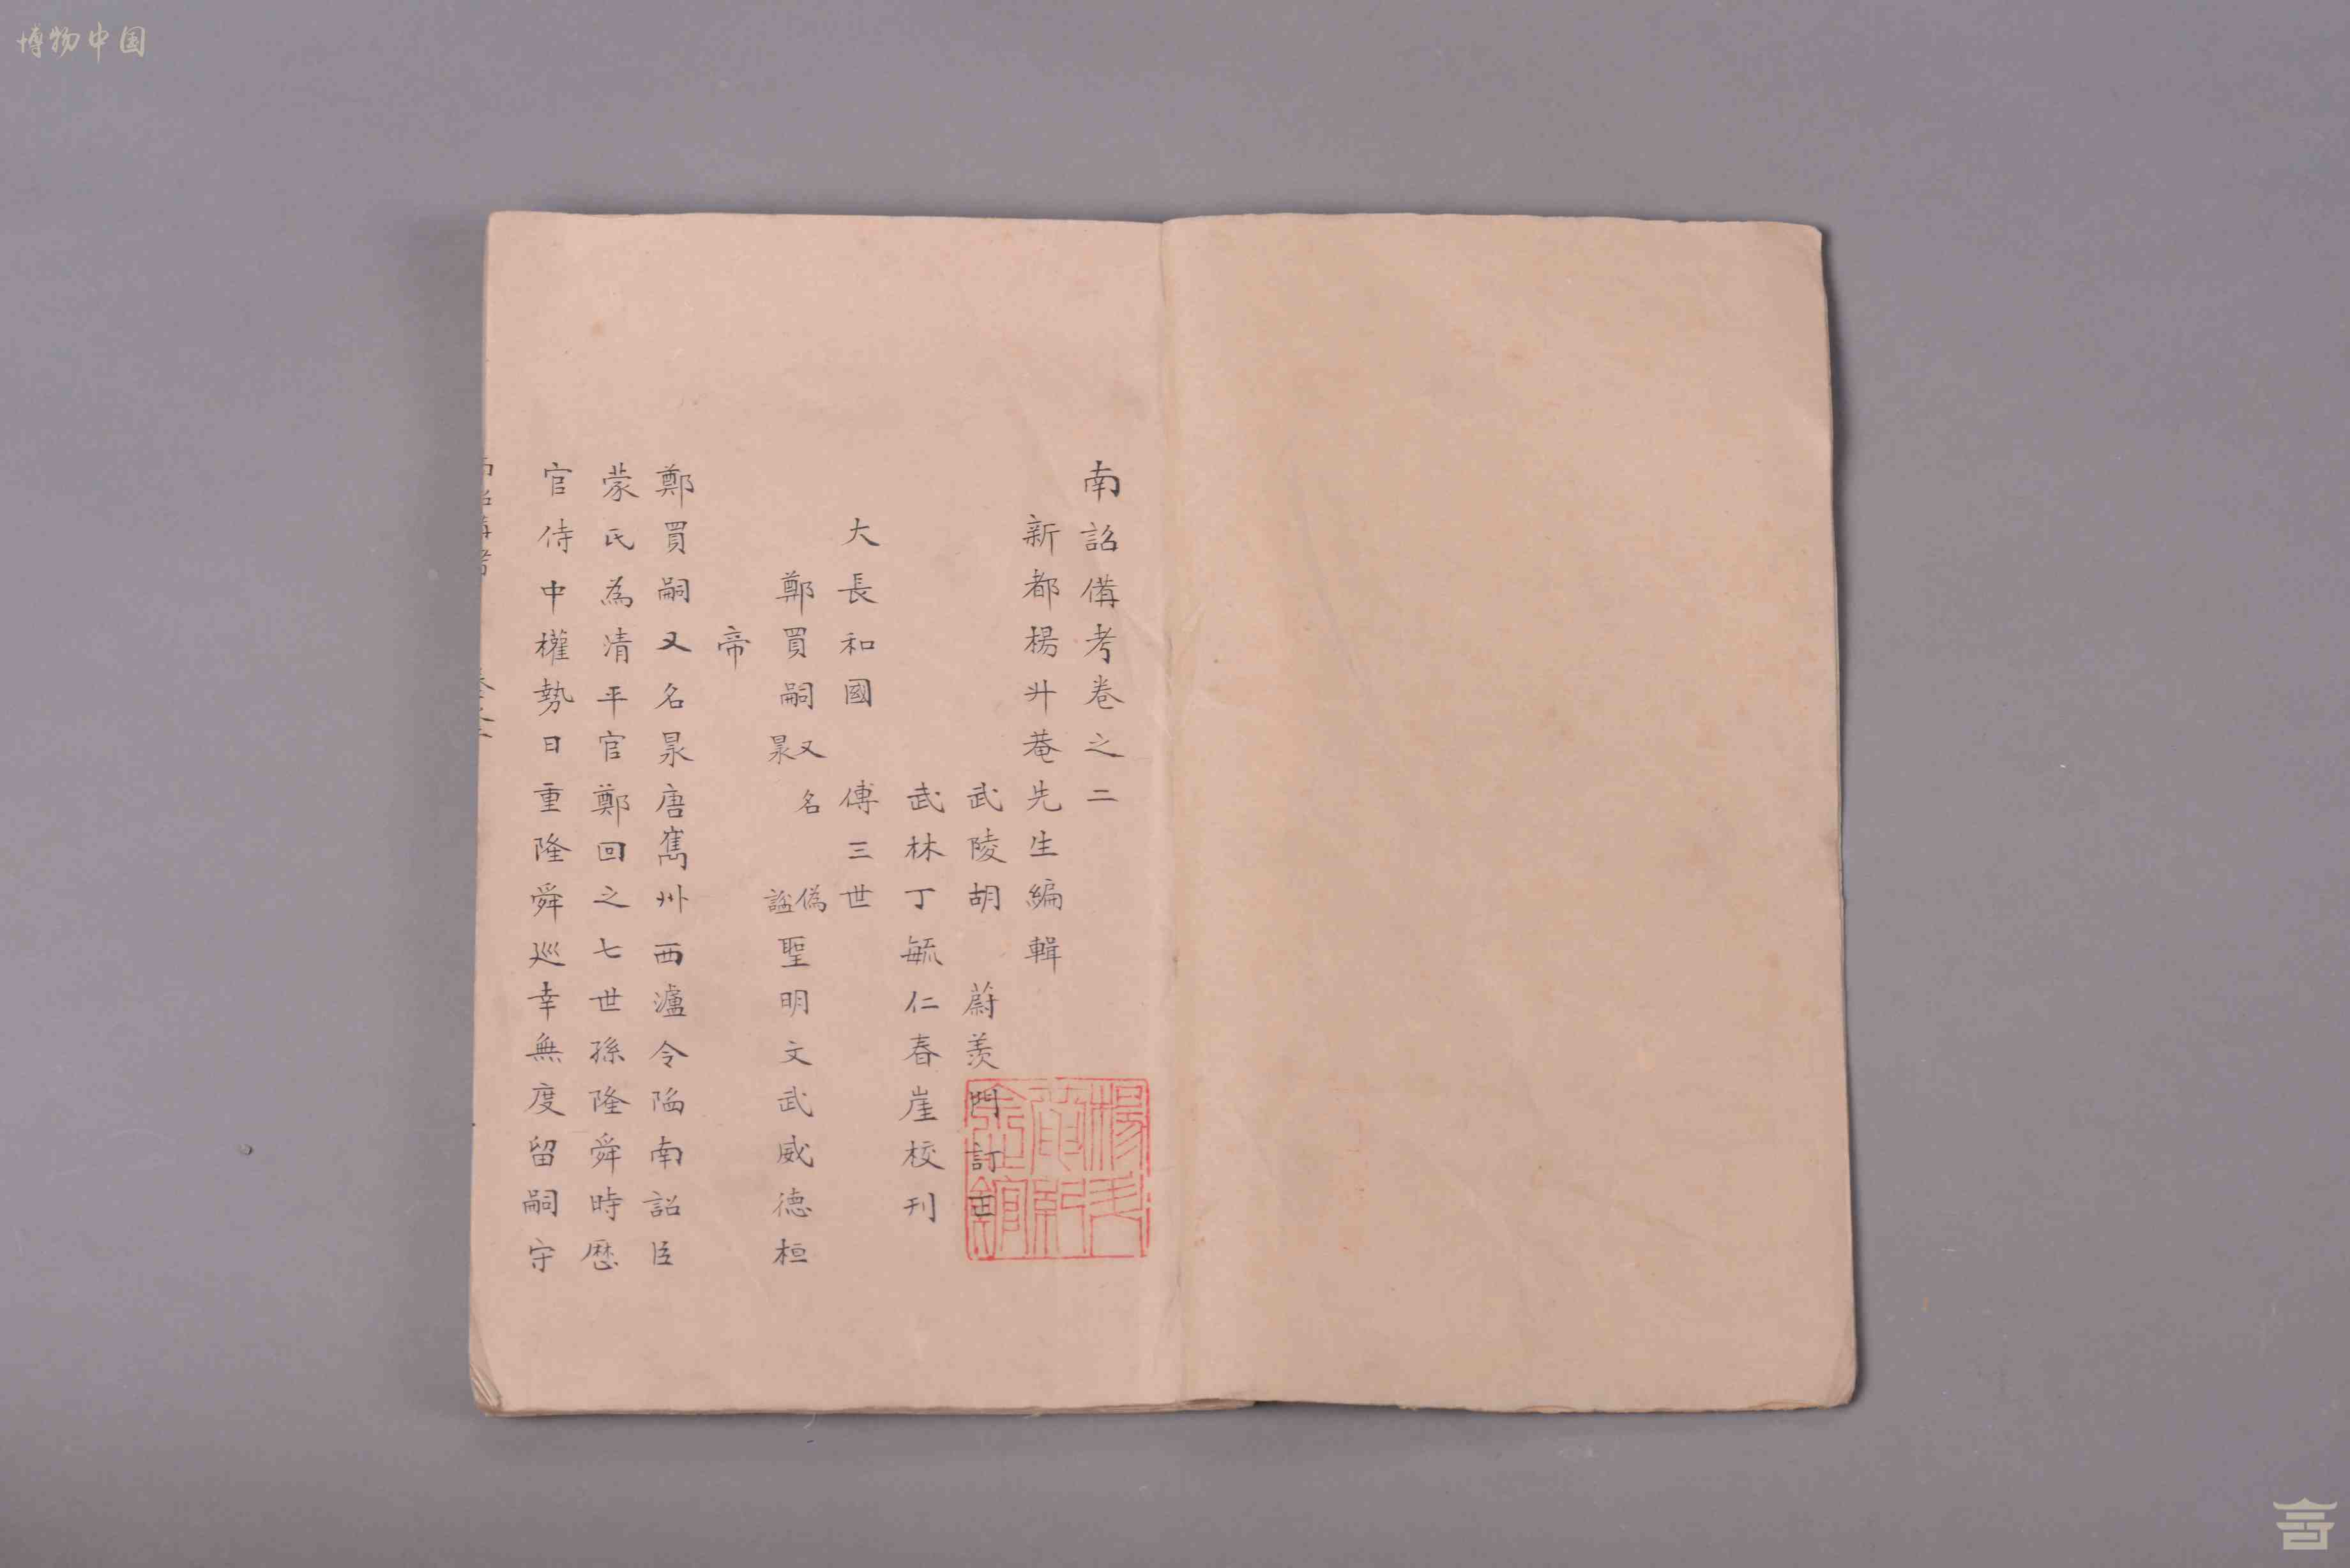 南詔備考卷之二
新都楊升菴先生編輯
武陵胡 蔚羨門訂正
武林丁毓仁春崖校刊
大長和國 傳三世
鄭買嗣又名㫤 偽諡聖明文武威德桓
帝
鄭買嗣又名㫤唐嶲州西瀘令陷南詔臣
蒙氏為清平官鄭回之七世孫隆舜時歷
官侍中權勢日重隆舜巡幸無度留嗣守
博物中国